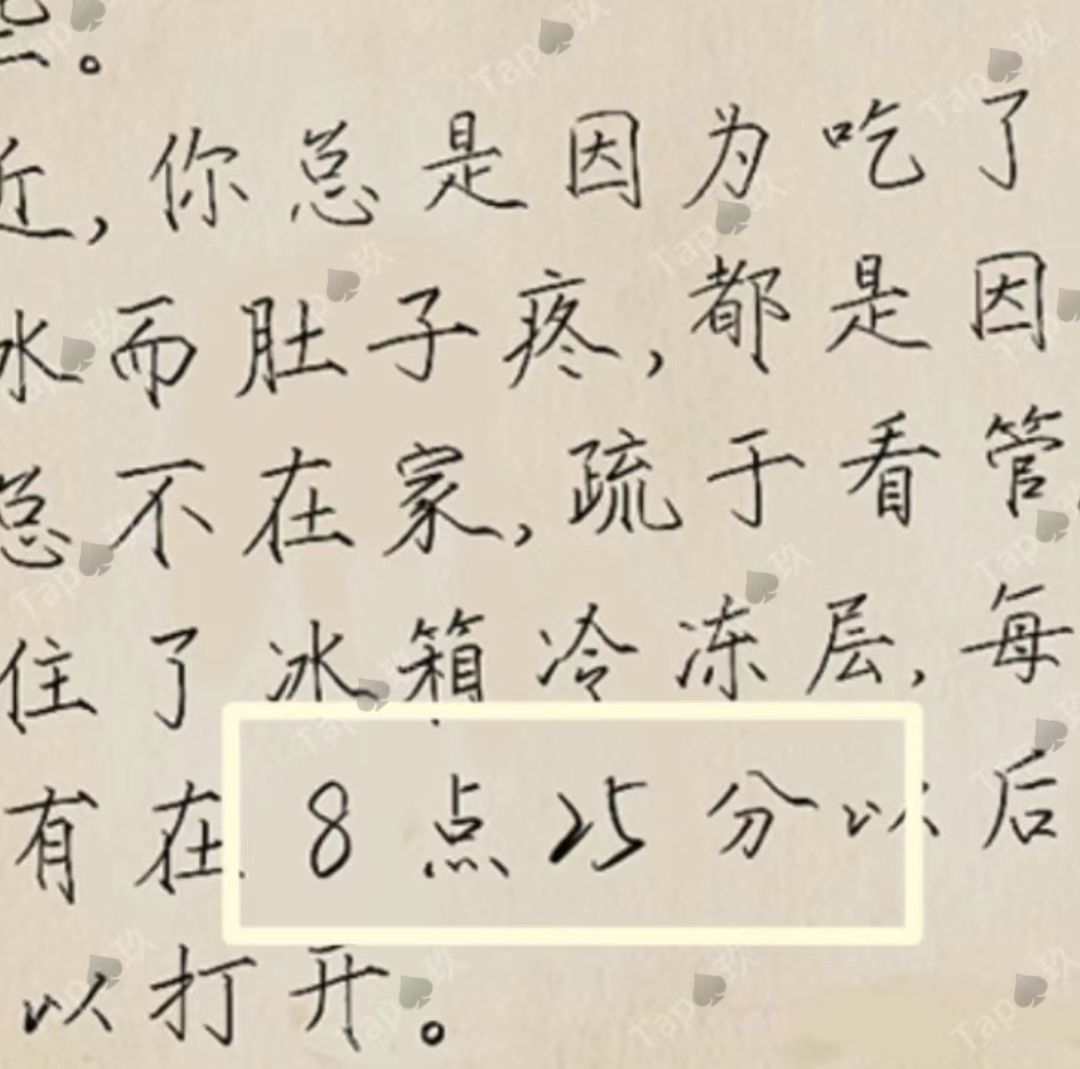 些。
近，你总是因为吃了
冰而肚子疼，都是因
总不在家，疏于看管，
住了冰箱冷冻层，每
有在8点25分以后
以打开。